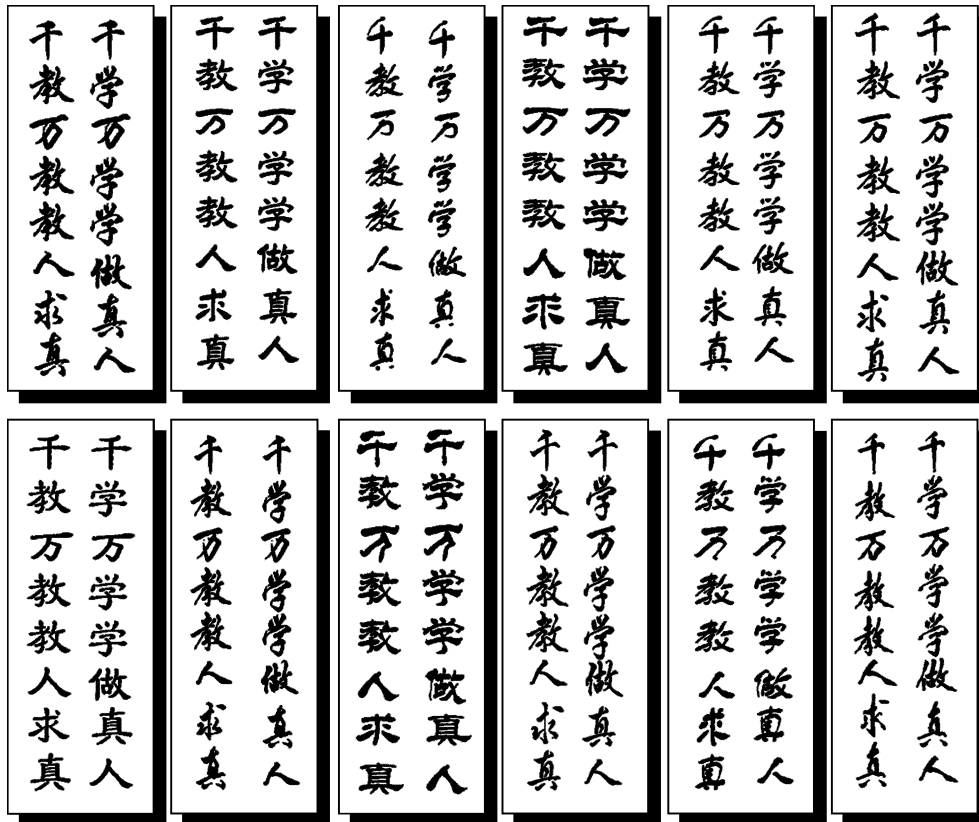 千教万教教人求真
千学万学学做真人
千教万教教人求真
千学万学学做真人
千教万教教人求真
千学万学学做真人
千教万教教人求真
千学万学学做真人
千教万教教人求真
千学万学学做真人
千教万教教人求真
千学万学学做真人
千教万教教人求真
千学万学学做真人
千教万教教人求真
千学万学学做真人
千教万教教人求真
千学万学学做真人
千教万教教人求真
千学万学学做真人
千教万教教人求真
千学万学学做真人
千教万教教人求真
千学万学学做真人